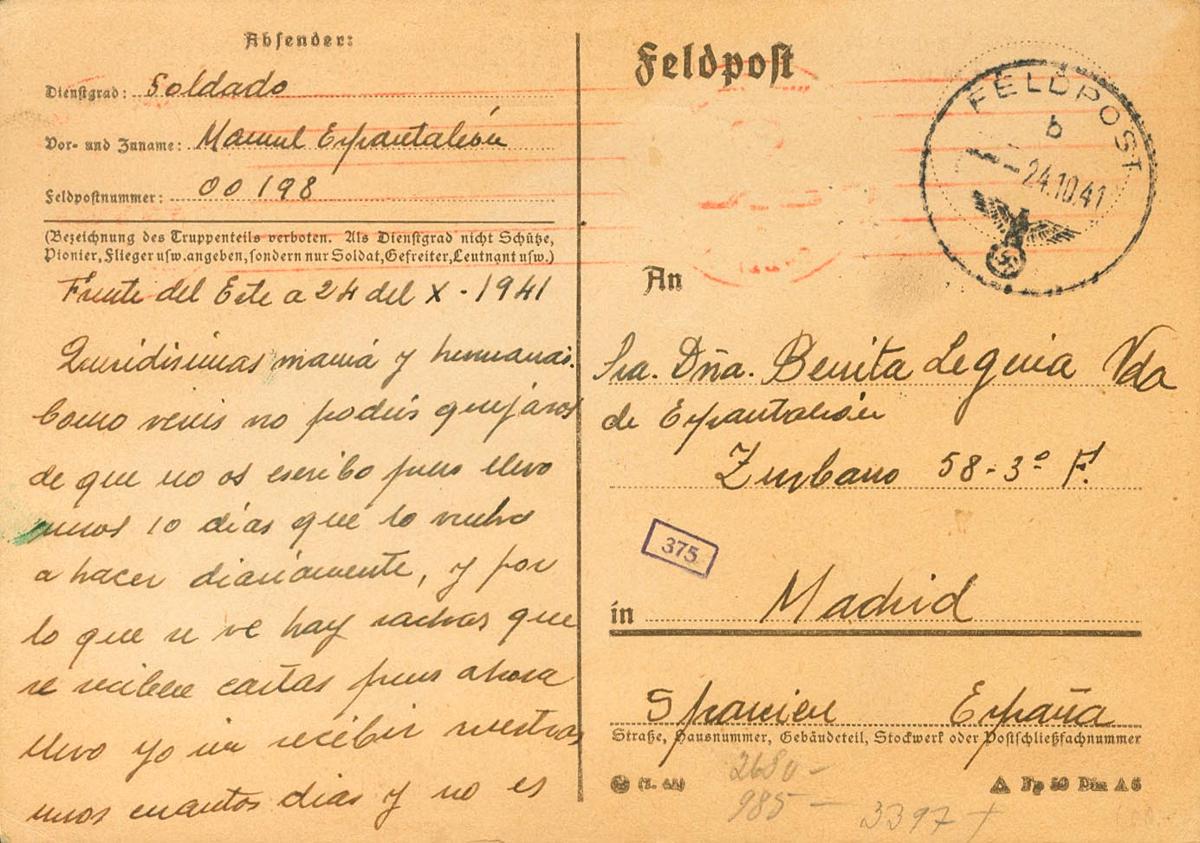 Absender:
Dienstgrad: Soldado
Vor- und Zuname: Manuel Espantaleón
Feldpostnummer: 00198
(Bezeichnung des Truppenteils verboten. Als Dienstgrad nicht Schütze,
Pionier, Flieger usw. angeben, sondern nur Soldat, Gefreiter, Leutnant usw.)
Frente del Este a 24 del X - 1941
Queridisimas mamá y hermanas.
Como veis no podeis quejaros
de que no os escribo pues llevo
unos 10 días que lo vuelvo
a hacer diariamente, y por
lo que se ve hay rachas que
se reciben cartas pues ahora
llevo yo sin recibir vuestras
unos cuantos dias y no es
Feldpost
FELDPOST
b
24.10.41
An
Sra. Dña. Benita Leguia Vda
de Espantaleón
Zurbano 58-3º F.
375
in Madrid
Spanien España
Straße, Hausnummer, Gebäudeteil, Stockwerk oder Postschließfachnummer
2680 -
985 - 3397 +
Fp 50 Din A 6